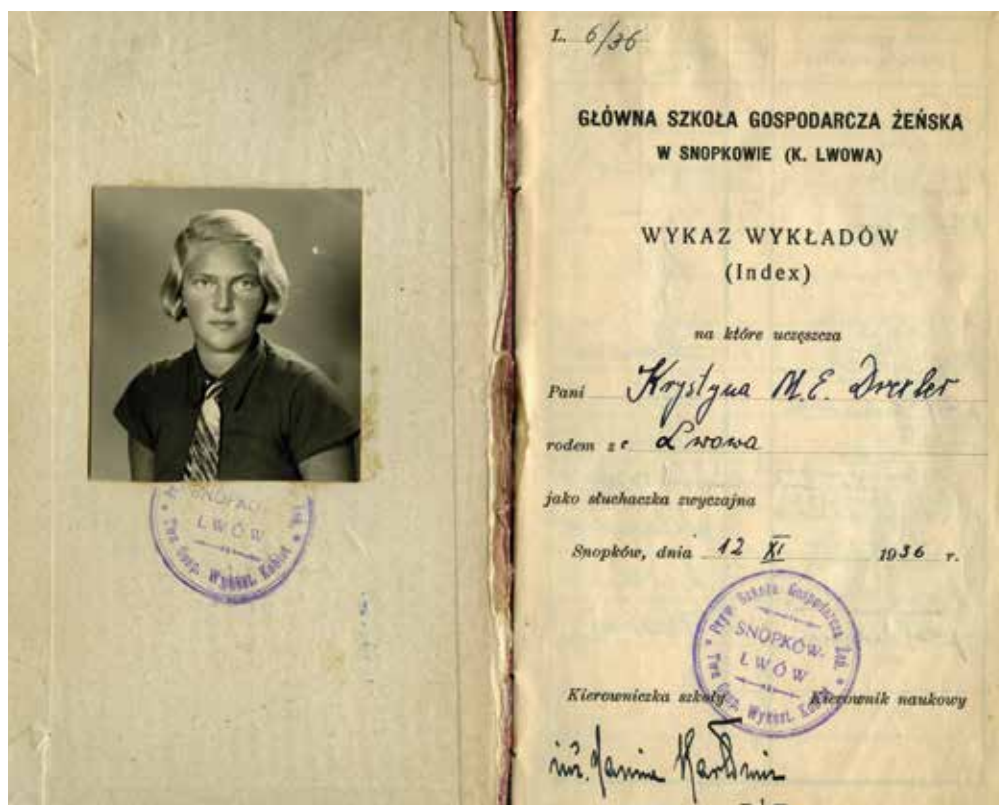 SNOPKÓW
LWÓW
Twa Gosp. Wykszt. Kobiet
L. 6/36
GŁÓWNA SZKOŁA GOSPODARCZA ŻEŃSKA
W SNOPKOWIE (K. LWOWA)
WYKAZ WYKŁADÓW
(Index)
na które uczęszcza
Pani Krystyna M. E. Drexler
rodem ze Lwowa
jako słuchaczka zwyczajna
Snopków, dnia 12 XI 1936 r.
Pryw. Szkoła Gospodarcza Żeń.
SNOPKÓW-
LWÓW
Twa Gosp. Wykszt. Kobiet
Kierowniczka szkoły Kierownik naukowy
inż. Janina